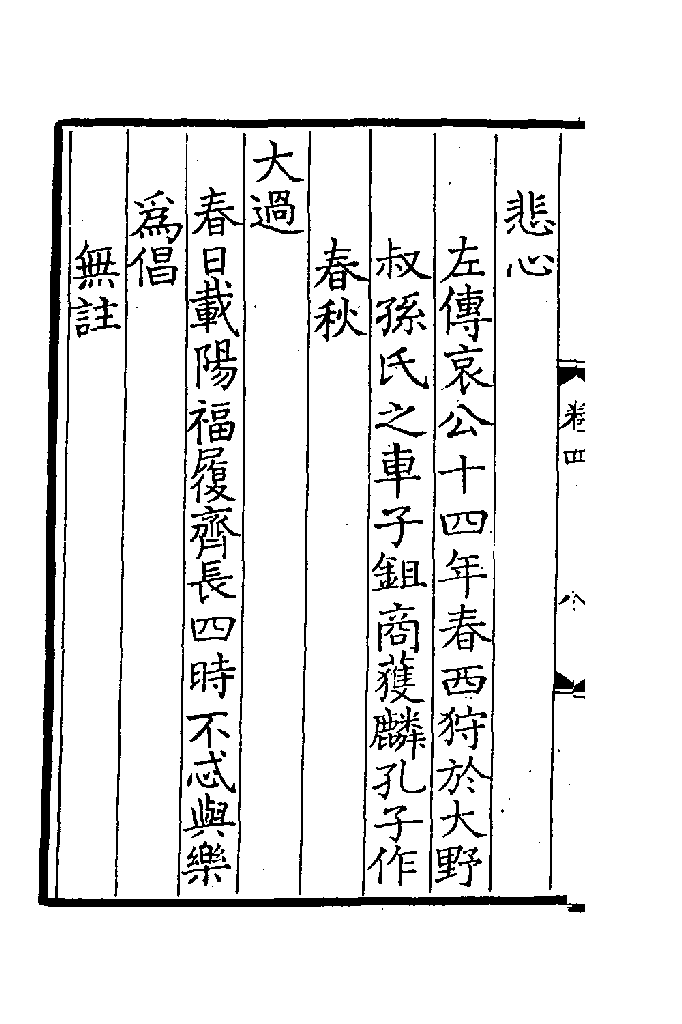 卷四
八
悲心
左傳哀公十四年春西狩於大野
叔孫氏之車子鉏商蒦麟孔子作
春秋
大過
春日載陽福履齊長四時不忒與樂
爲倡
無註